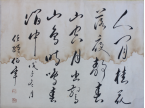 人閒桂花
落夜靜春
山空月出驚
山鳥時鳴春
澗中